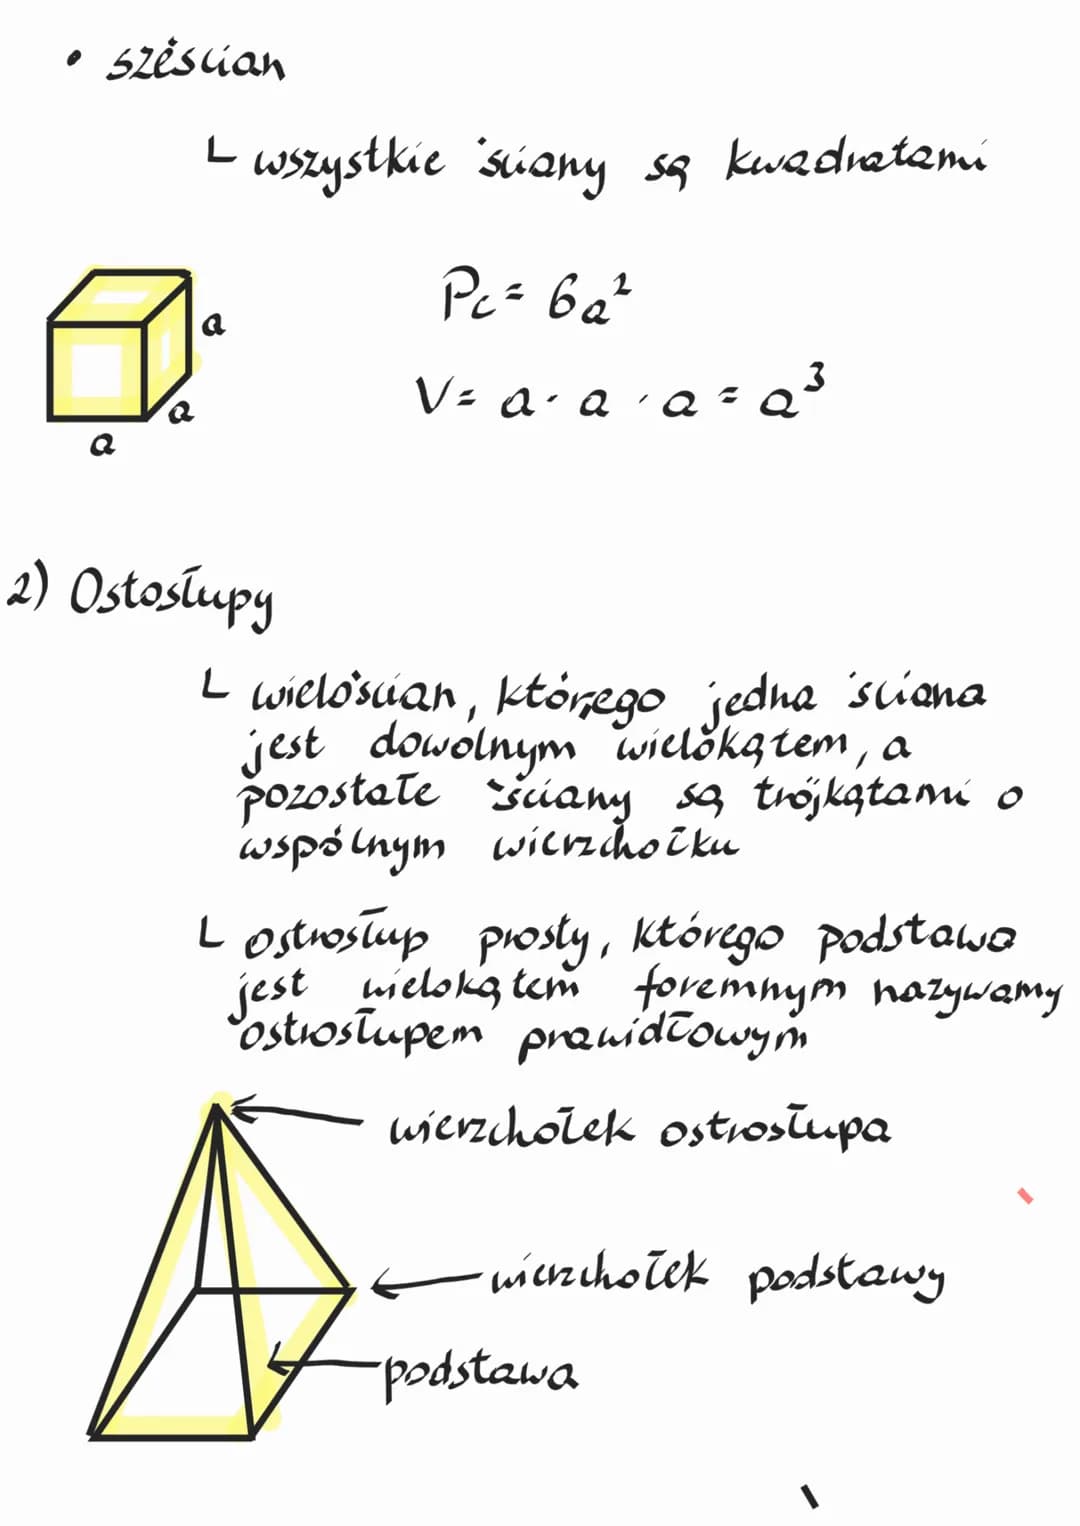 • sześcian
L wszystkie ściany są kwadratami
a
a
a
Pc = 6a²
V = a · a · a = a³
2) Ostosłupy
L wielościan, którego jedna ściana
jest dowolnym wielokątem, a
pozostałe ściany są trójkątami o
wspólnym wierzchołku
L ostrosłup prosty, którego podstawa
jest wielokątem foremnym nazywamy
ostrosłupem prawidłowym
wierzchołek ostrosłupa
wierzchołek podstawy
podstawa